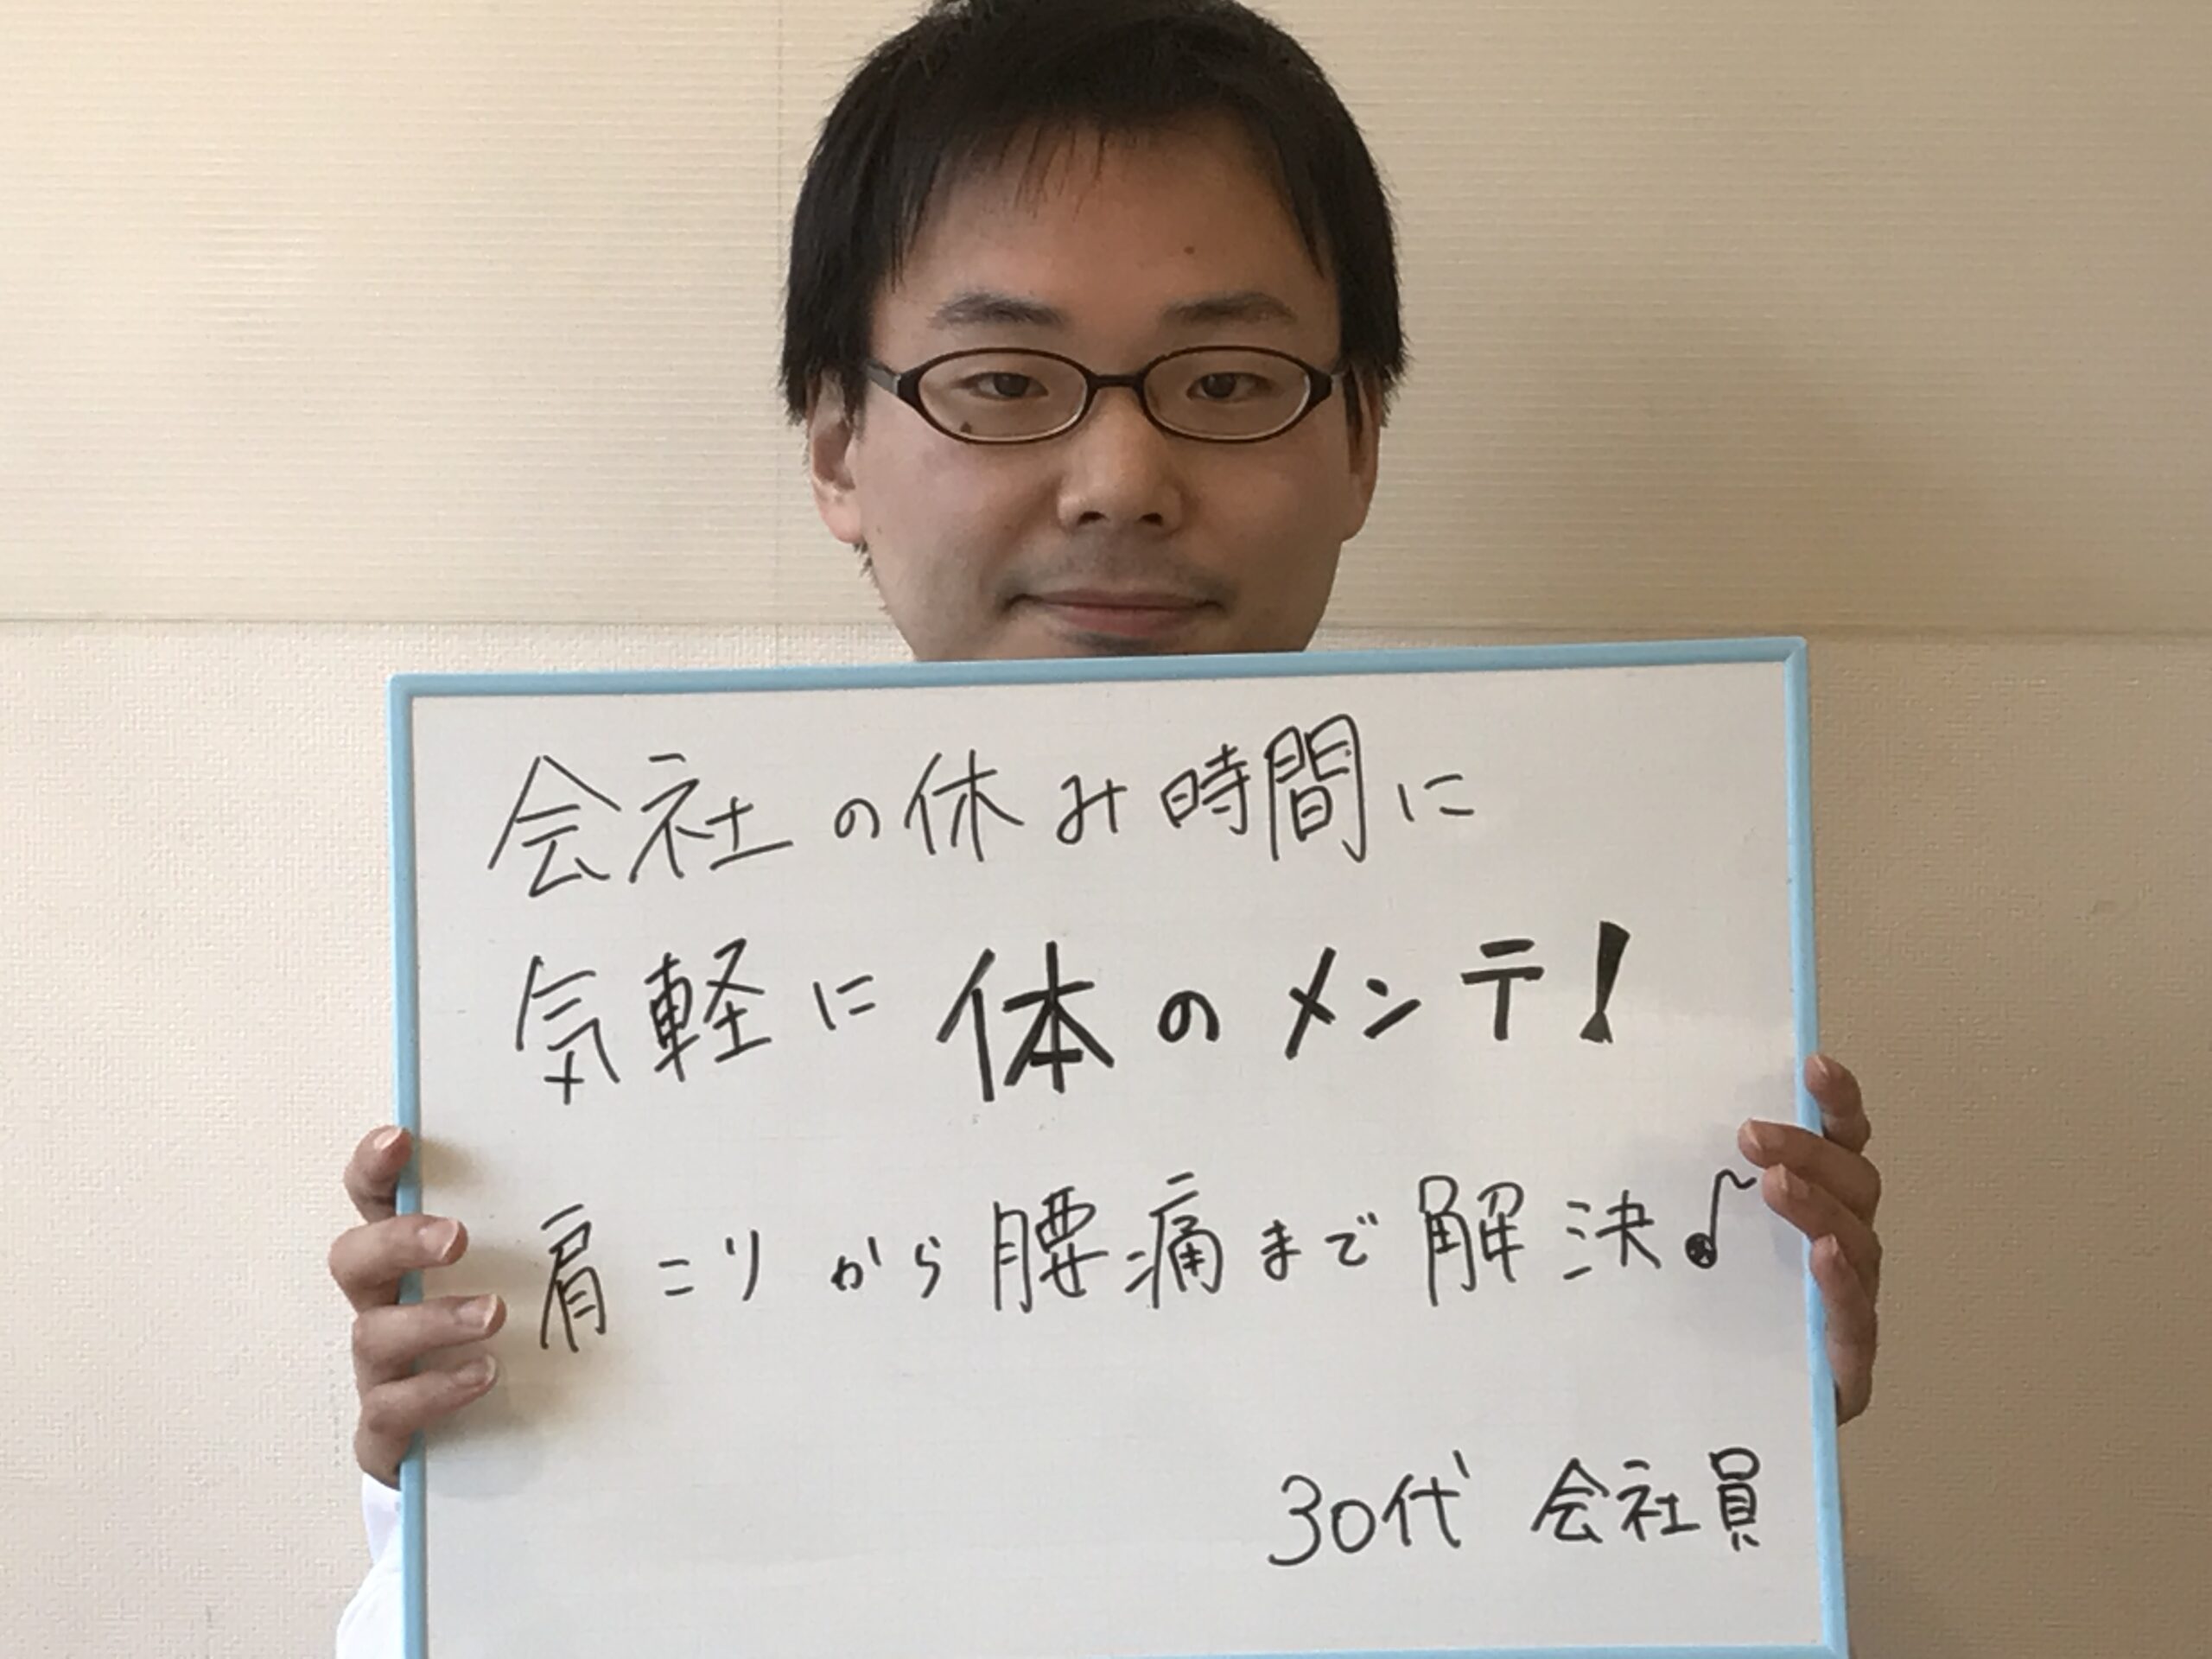 会社の休み時間に
気軽に体のメンテ!
肩こりから腰痛まで解決♪
30代 会社員